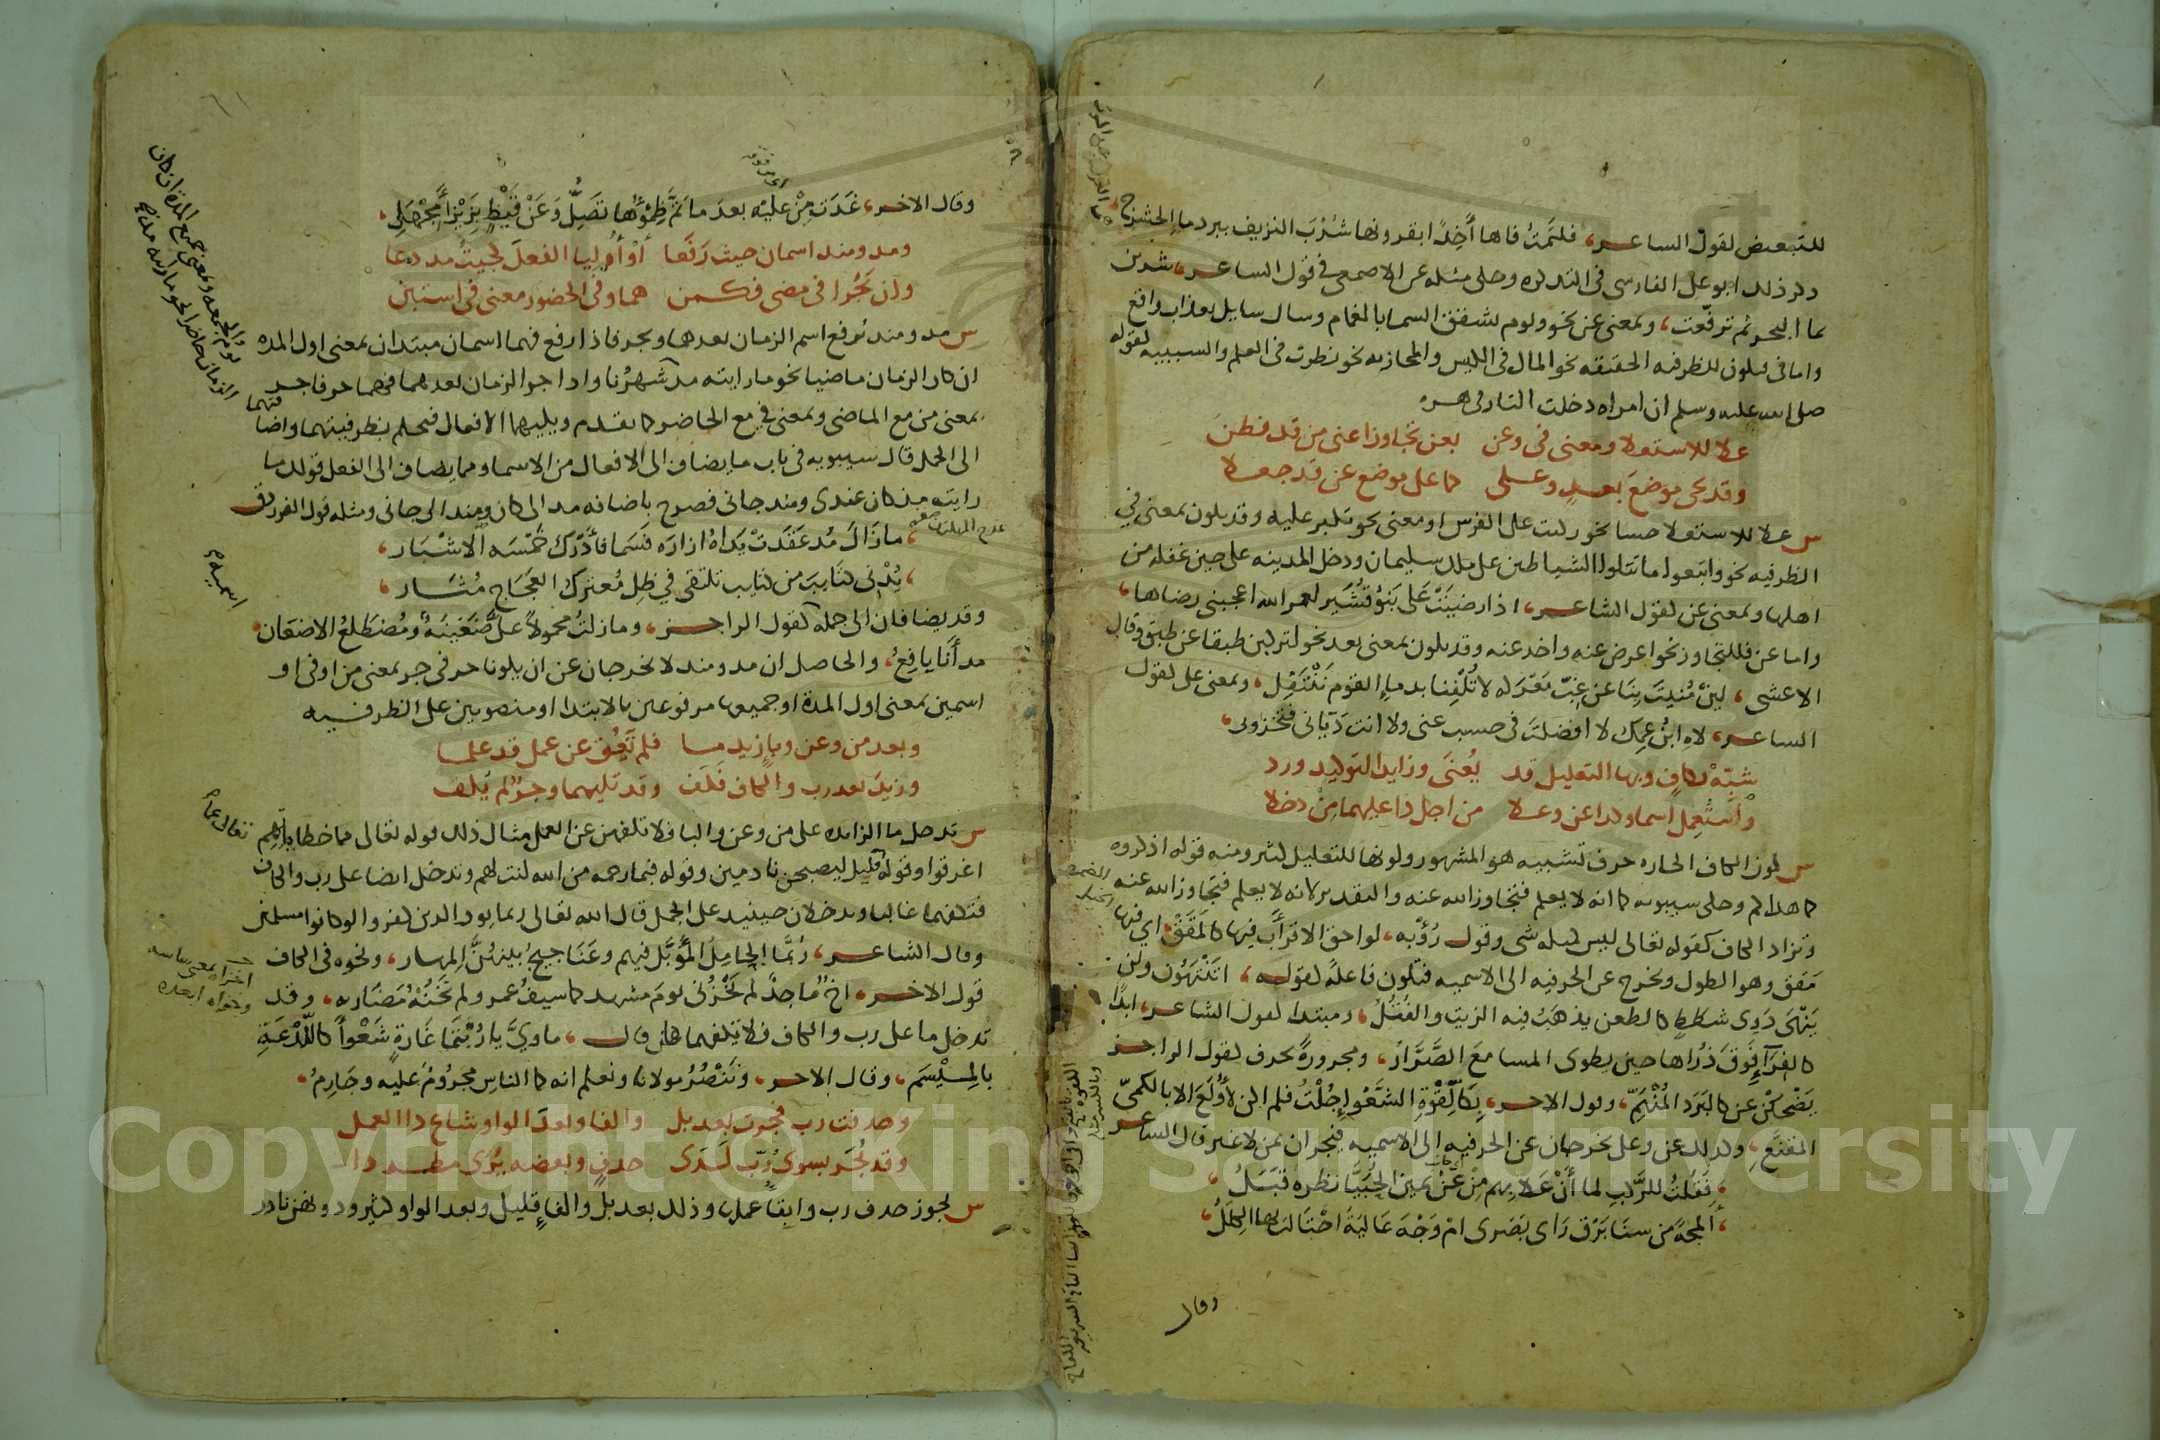 للتبعيض لقول الساعر، فلثمت فاها آخذا بقرونها شُرْبَ النزيف ببرد ماء الحشرج،
ذكر ذلك ابو علي الفارسي في التذكره وحكى مثله عن الاصمعي في قول الساعر، شربن
بماء البحر ثم ترفّعت، وبمعنى عن نحو ويوم تشقق السما بالغمام وسال سايل بعذاب واقع
واما في فتكون للظرفيه الحقيقه نحو المال في الكيس والمجازيه نحو نظرت في العلم والسببيه لقوله
صلى الله عليه وسلم ان امراه دخلت النار في هره
على للاستعلا ومعنى في وعن بعن تجاوزا عنى من قد فطن
وقد تجي موضعَ بعدٍ وعلى كما على موضع عن قد جعلا
س على للاستعلا حسا نحو ركبت على الفرس او معنى نحو تكبر عليه وقد تكون بمعنى في
الظرفيه نحو واتبعوا ما تتلوا الشياطين على ملك سليمان ودخل المدينه على حين غفله من
اهلها وبمعنى عن لقول الشاعر، اذا رضيَتْ عَلَى بَنُو قُشَير لعمر الله اعجبني رضاها،
واما عن فللتجاوز نحو اعرض عنه واخد عنه وقد تكون بمعنى بعد نحو لتركبن طبقا عن طبق وقال
الاعشى، لئِنْ مُنيتَ بِنَا عن غِبّ مَعْرَكه لا تُلْفِنا بدماءِ القوم نَنْتَفِل، وبمعنى على لقول
الساعر، لاهِ ابْنُ عمِك لا افضلتَ في حسب عني ولا انت دَيّاني فتخزوني،
شبّهْ بكافٍ وبها التعليل قد يُعْنَى وزايدا لتوكيد ورد
واسْتُعمِل اسما وكذا عن وعلى من اجل ذا عليهما مِنْ دخلا
س كون الكاف الجاره حرف تشبيه هو المشهور وكونها للتعليل كثير ومنه قوله اذكروه
كما هداكم وحكى سيبويه كما انه لا يعلم فتجاوز الله عنه والتقدير لانه لا يعلم فتجاوز الله عنه
وتزاد الكاف كقوله تعالى ليس كمثله شي وقول رُؤْبه، لواحق الاقرأب فيها كالمَقَقْ اي فيها
مَقَق وهو الطول وتخرج عن الحرفيه الى الاسميه فتكون فاعله لقوله، اتَنْتَهُون ولن
يَنْهَى ذَوِى شططٍ كالطعن يذهَبُ فيه الزيت والفُتُلُ، ومبتدا لقول الشاعر، ابدًا
كالفِرَآءِ فَوْقَ ذُرَاها حين يطوى المسامعَ الصَّرَّارُ، ومجرورةً بحرف لقول الراجز
يَضْحكْنَ عن كالبَرَد المُنْهَمِّ، وقول الاخر، بِكَاللِّقْوَةِ الشَغْواءِ جُلْتُ فلم اكن لأُولَعَ الا بالكميّ
المقنَّعِ، وكذلك عن وعلى تخرجان عن الحرفيه الى الاسميه فتجران بمن لا غير قال الساعر
فَقُلْتُ للرَّكبِ لما أَنْ عَلا بهم مِنْ عَنْ يمين الحُبَيّا نظره قَبَلُ،
، أَلمحةً من سنَا بَرْق رَأى بَصَرى امْ وَجْهَ عَاليَةَ اخْتَالت بها الكِلَلُ،
وقال
وقال الاخر، غَدَتْ مِنْ عليْه بعدَ ما تمَّ ظِمْؤُها تَصِلُّ وَعَنْ قَيْظٍ بِزَيْزَاءَ مَجْهَلِ،
ومذ ومنذ اسمان حيث رَفَعَا أوْ أُولِيا الفعلَ كجيتُ مذ دعا
وان يَجُرّا في مضي فكمن هما وفي الحضور معنى في استبن
س مذ ومنذ يُرفع اسم الزمان بعدها ويجر فاذا رفع فهما اسمان مبتدان بمعنى اول المده
ان كان الزمان ماضيا نحو ما رايته مذ شهرُنا واذا جر الزمان بعدهما فهما حرفا جر فهما
بمعنى من مع الماضي وبمعنى في مع الحاضر كما تقدم ويليهما الافعال فيحكم بظرفيتهما واضا
الى الجمل قال سيبويه في باب ما يضاف الى الافعال من الاسما ومما يضاف الى الفعل قولك ما
رايته مذ كان عندي ومنذ جاني فصرح باضافه مذ الى كان ومنذ الى جاني ومثله قول الفرزدق
، ما زالَ مُذ عَقَدَتْ يَدَاهُ ازارَه فسَمَا فأدْرَك خَمْسَه الأشْبَار،
، يُدْنى كتَايبَ من كتَايب تلتقى في ظل مُعتركِ العَجَاج مُثَارِ،
وقد يضافان الى جمله كقول الراجز، وما زلتُ محمولاً علَىَّ ضَغينَةٌ ومُضطَلعُ الاضغان
مذ أَنَا يافِعُ، والحاصل ان مذ ومنذ لا تخرجان عن ان يكونا حرفي جر بمعنى من او في او
اسمين بمعنى اول المدة او جميعها مرفوعين بالابتدا او منصوبين على الظرفيه
وبعد من وعن وباءٍ زيد ما فلم تَعُقْ عن عمل قد علما
وزيدَ بعد رب والكاف فكَف وقد تليهما وجرٌ لم يُكف
س تدخل ما الزايده على من وعن والبا فلا تكفهن عن العمل مثال ذلك قوله تعالى مما خطاياهم
اغرقوا وقوله عما قليل ليصبحن نادمين وقوله فبما رحمه من الله لنت لهم وتدخل ايضا على رب والكاف
فتكفهما غالبا وتدخلان حينيذ على الجمل قال الله تعالى ربما يود الذين كفروا لو كانوا مسلمين
وقال الشاعر، رُبَّما الجَامِلُ المُؤَبَّل فيهم وعَنَاجيجُ بينهُنَّ المِهار، ونحوه في الكاف
قول الاخر، اخٌ ماجدٌ لم يُخْزِنى يومَ مشهد كما سيفُ عمرو لم تَخُنْهُ مَضَاربه، وقد
تدخل ما على رب والكاف فلا تكفهما قال، ماويَّ يا رُبَّتمَا غَارةٍ شَعْواءَ كاللّذْعَةِ
بالمِيْسَم، وقال الاخر، ونَنْصُرُ مولانا ونعلم انه كما الناسِ مجرُومٌ عليه وجَارِمُ،
وحذفت رب فجرت بعد بل والفا وبعد الواو شاع ذا العمل
وقد يُجَر بسوى رُبّ لَدَى حذفٍ وبعضه يُرَى مطردا
س يجوز حذف رب وابقاءُ عملها وذلك بعد بل والفاءِ قليل وبعد الواو كثير ودونهن نادر